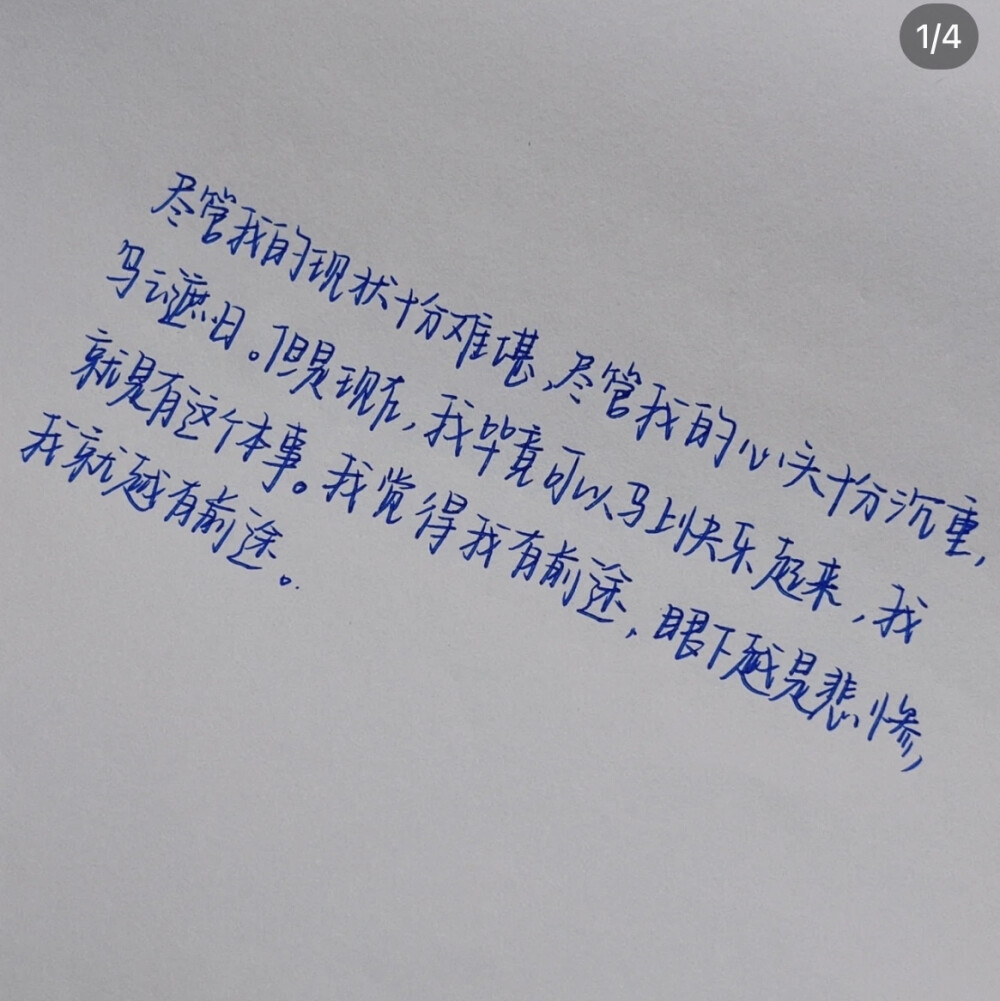 1/4
尽管我的现状十分难堪,尽管我的心头十分沉重,
乌云遮日。但是现在,我毕竟可以马上快乐起来,我
就是有这个本事。我觉得我有前途,眼下越是悲惨,
我就越有前途。